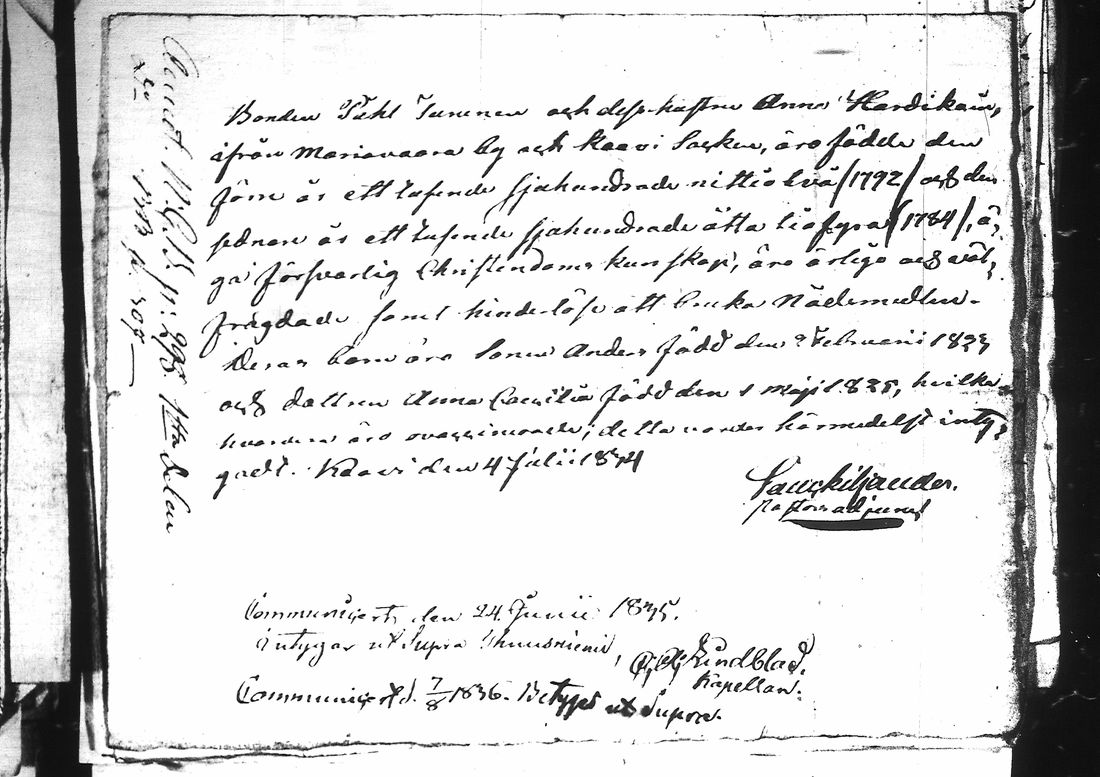 Bonden Påhl Turunen och dess hustru Anna Hardikain,
ifrån Mariavaara by och Kaavi Socken, äro födde den
förre år ett tusende sjuhundrade nittiotvå (1792) och den
sednare år ett tusende sjuhundrade åttatiofyra (1784), ä,
ga försvarlig Christendoms kunskap, äro ärlige och väl,
frägdade samt hinderlöse att bruka Nådemedlen.
Deras barn äro Sonen Anders född den Februarii 1833
och dottren Anna Caecilia född den 1 Maji 1825, hvilka
hvardera äro ovaccinerade; detta varder härmedelst inty,
gadt. Kaavi den 4 Julii 1834
Pastorsadjunct
Communicerts den 24 Junii 1835.
intygar ut Supra Thuusniemi,
Lindblad.
Kapellan.
Communicert d. 7/8 1836. Betyges ut Supra.
Annot. N.C.B. p: 298. 1sta delen